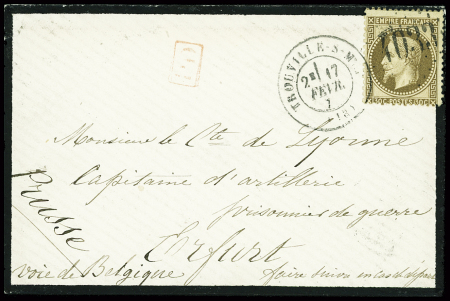 EMPIRE FRANÇAIS
30C POSTES 30C
P.D.
TROUVILLE-S-M
2E 17
FEVR.
Monsieur le Cte de Lyonne
Capitaine d'artillerie
prisonnier de guerre
Erfurt
Prusse
voie de Belgique
faire suivre en cas de départ